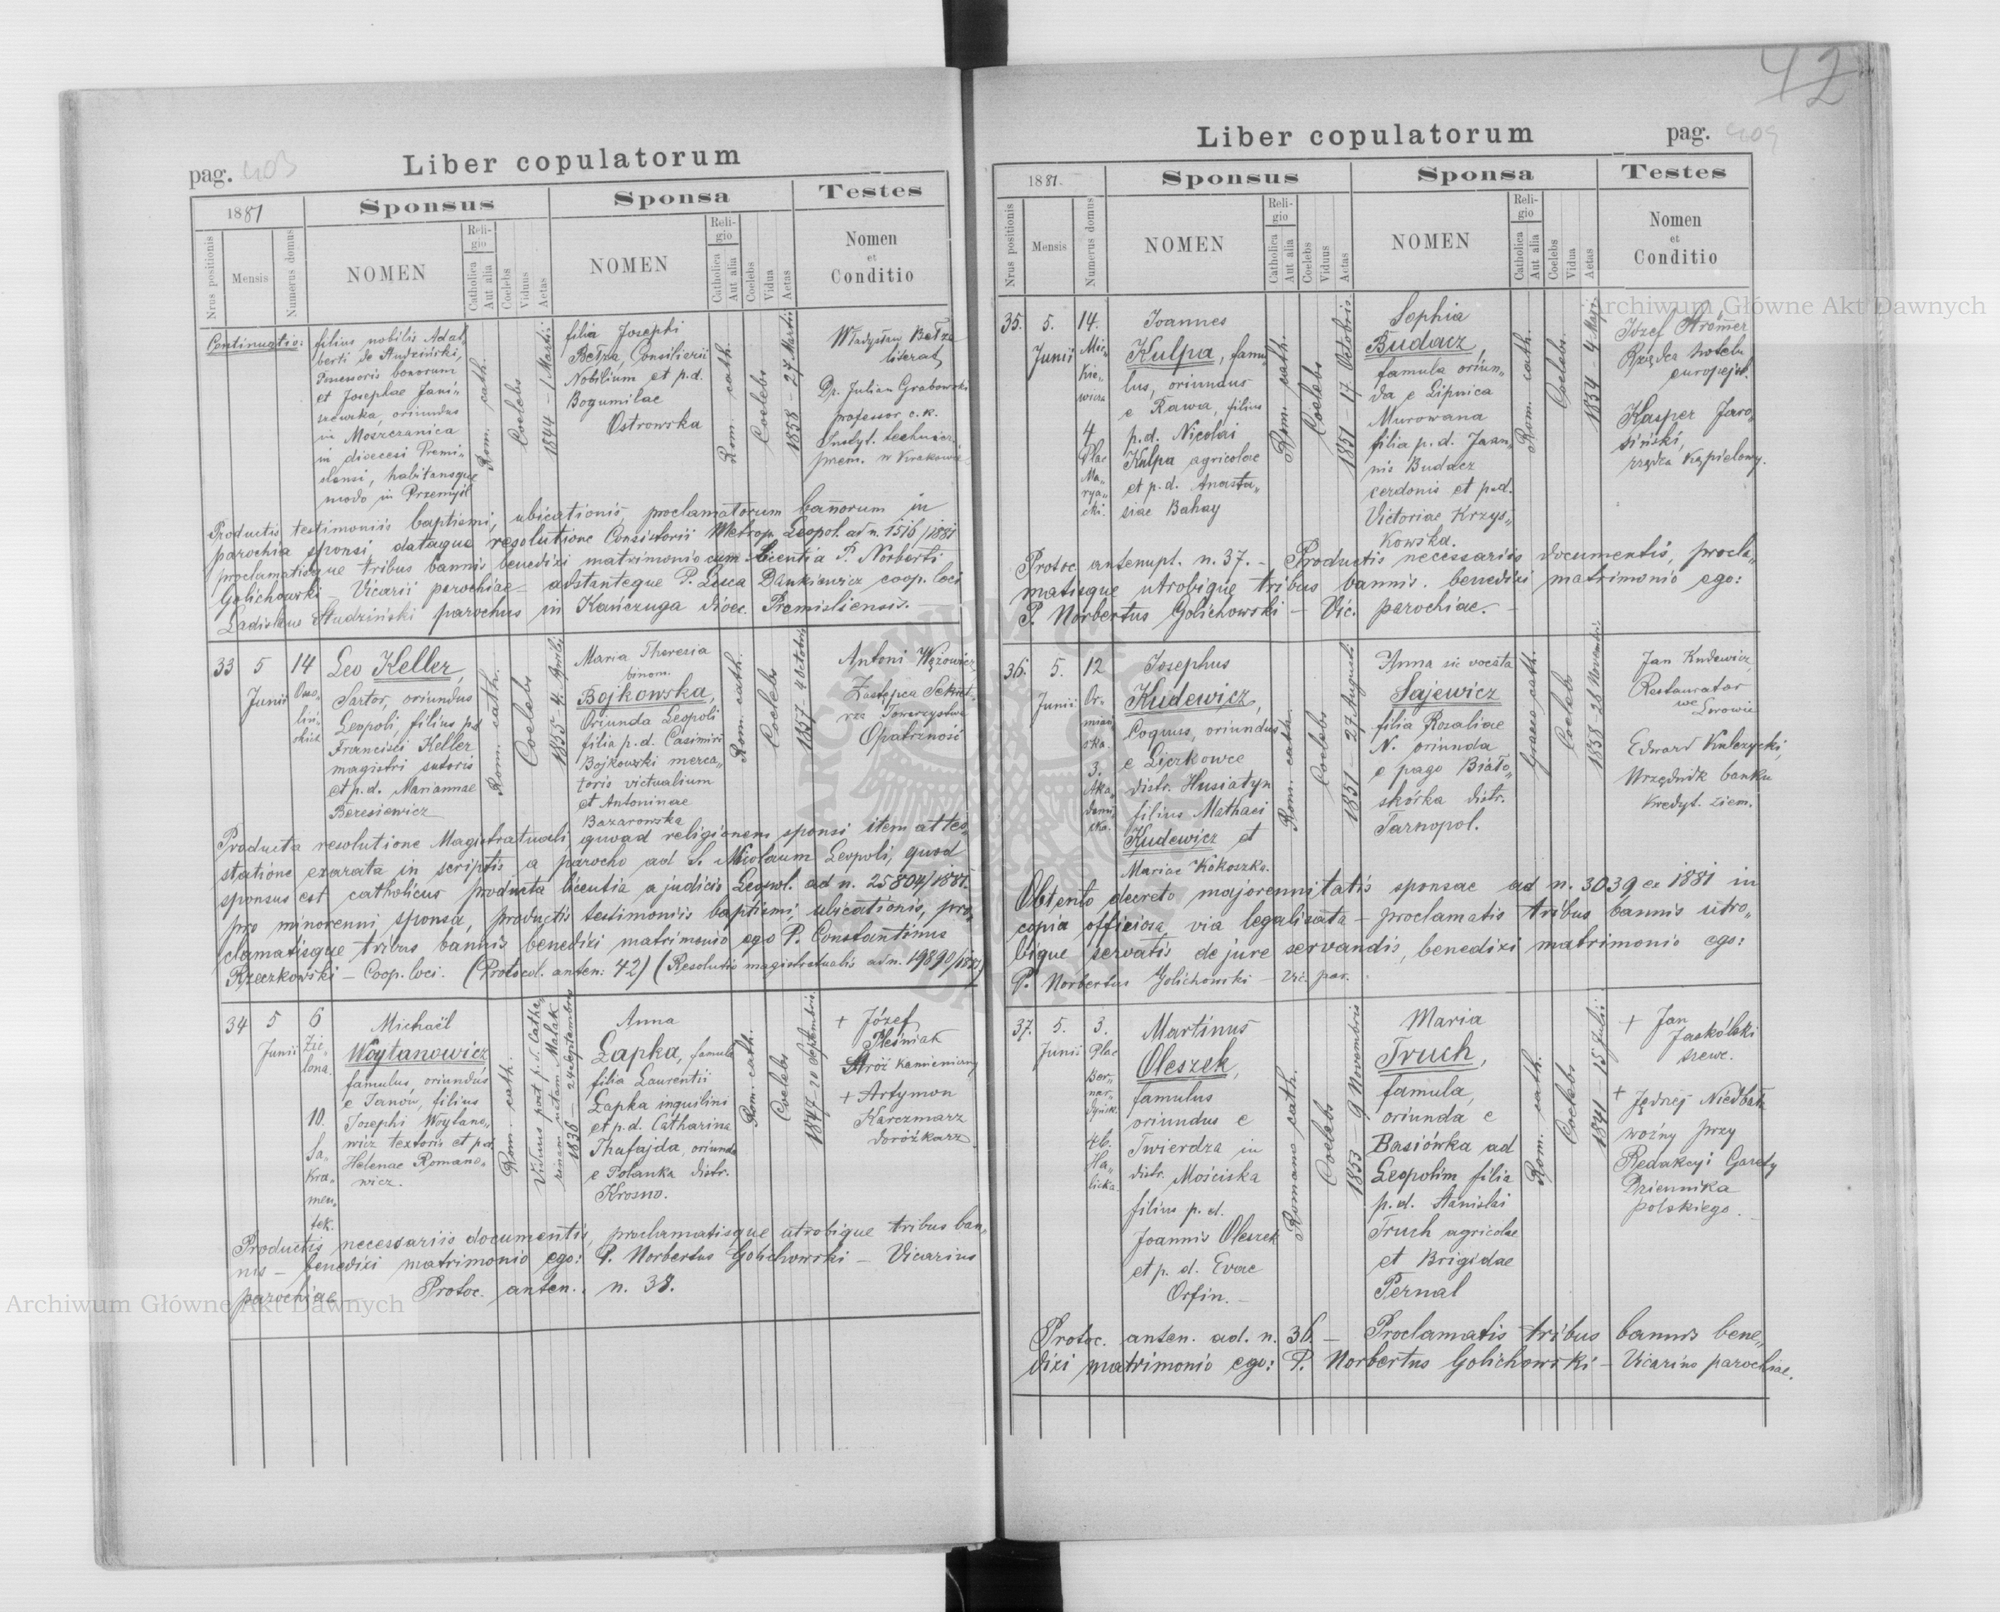 42
pag. 403
Liber copulatorum
1881
Sponsus
Sponsa
Testes
Nrus positionis
Mensis
Numerus domus
NOMEN
Reli-
gio
Catholica
Aut alia
Coelebs
Viduus
Aetas
NOMEN
Reli-
gio
Catholica
Aut alia
Coelebs
Vidua
Aetas
Nomen
et
Conditio
Continuatio:
filius nobilis Adal-
berti de Studziński,
Possessoris bonorum
et Josephae Jani-
szewska, oriundus
in Moszczanica
in dioecesi Premi-
sliensi, habitansque
modo in Przemyśl
Rom. cath.
Coelebs
1844 - 1 Martii
filia Josephi
Bełza, Consilierii
Nobilium et p.d.
Bogumilae
Ostrowska
Rom. cath.
Coelebs
1858 - 27 Martii
Władysław Bełza
literat
Dr. Julian Grabowski
professor c.k.
Instyt. technicz.
przem. w Krakowie
Productis testimoniis baptismi, ubicationis, proclamatorum bannorum in
parochia sponsi, dataque resolutione Consistorii Metrop. Leopol. ad n. 1516/1881
proclamatisque tribus bannis benedixi matrimonio cum licentia P. Norberti
Golichowski - Vicarii parochiae - adstanteque P. Luca Dankiewicz coop. loci
Ladislaus Studziński parochus in Kańczuga dioec. Premisliensis.
33
5
Junii
14
Osso-
liń-
skich
Leo Keller,
Sartor, oriundus
Leopoli filius p.d.
Francisci Keller
magistri sutoris
et p.d. Mariannae
Beresiewicz
Rom. cath.
Coelebs
1855 - 4. Aprilis
Maria Theresia
binom.
Bojkowska,
Oriunda Leopoli
filia p.d. Casimiri
Bojkowski merca-
toris victualium
et Antoninae
Bazarowska
Rom. cath.
Coelebs
1857 - 4 Octobris
Antoni Wężowicz,
Zastępca Sekreta-
rza Towarzystwa
Opatrzność
Producta resolutione Magistratuali quoad religionem sponsi item attes-
statione exarata in scriptis a parocho ad S. Nicolaum Leopoli, quod
sponsus est catholicus producta licentia a judicio Leopol. ad n. 25804/1881.
pro minorenni sponsa, productis testimoniis baptismi, ubicationis, pro-
clamatisque tribus bannis benedixi matrimonio ego P. Constantinus
Rzeczkowski - Coop. loci. (Protocol. anten: 42) (Resolutio magistratualis ad n. 19890/1881)
34
5
Junii
6
Zie-
lona.
10.
Sa-
kra-
men-
tek.
Michaël
Woytanowicz
famulus, oriundus
e Janow, filius
Josephi Woytano-
wicz textoris et p.d.
Helenae Romano-
wicz.
Rom. cath.
Viduus post p. d. Catha-
rinam natam Malak
1836 - 24 Septembris
Anna
Łapka, famula
filia Laurentii
Łapka inquilini
et p.d. Catharina
Thafajda, oriunda
e Polanka distr.
Krosno.
Rom. cath.
Coelebs
1847 - 20 Septembris.
+ Józef
Pleśniak
Stróż kamieniczny
+ Artymon
Karczmarz
doróżkarz
Productis necessariis documentis, proclamatisque utrobique tribus ban-
nis - benedixi matrimonio ego: P. Norbertus Golichowski - Vicarius
parochiae - Protoc. anten. n. 38.
Liber copulatorum
pag. 404
1881.
Sponsus
Sponsa
Testes
Nrus positionis
Mensis
Numerus domus
NOMEN
Reli-
gio
Catholica
Aut alia
Coelebs
Viduus
Aetas
NOMEN
Reli-
gio
Catholica
Aut alia
Coelebs
Vidua
Aetas
Nomen
et
Conditio
35.
5.
Junii
14.
Mic-
kie-
wicza
4
Plac
Ma-
rya-
cki.
Joannes
Kulpa, famu-
lus, oriundus
e Rawa, filius
p.d. Nicolai
Kulpa agricolae
et p.d. Anasta-
siae Bahay
Rom. cath.
Coelebs
1851 - 17 Octobris
Sophia
Budacz,
famula oriun-
da e Lipnica
Murowana
filia p.d. Joan-
nis Budacz
cerdonis et p.d.
Victoriae Krzys-
kowska.
Rom. cath.
Coelebs.
1854 - 4 Maji
Józef Krömer
Rządca hotelu
europejsk.
Kasper Jaro-
siński,
rządca kąpielowy.
Protoc. antenupt. n. 37. - Productis necessariis documentis, procla-
matisque utrobique tribus bannis. benedixi matrimonio ego:
P. Norbertus Golichowski - Vic. parochiae. -
36.
5.
Junii
12
Or-
miań-
ska.
3.
Aka-
demi-
cka.
Josephus
Kudewicz,
Coquus, oriundus
e Liczkowce
distr. Husiatyn
filius Mathaei
Kudewicz et
Mariae Kokoszka.
Rom. cath.
Coelebs
1851 - 27 Augusti
Anna sic vocata
Sajewicz
filia Rosaliae
N. oriunda
e pago Biało-
skórka distr.
Tarnopol.
Graeco cath.
Coelebs
1858 - 28 Novembris
Jan Kudewicz,
Restaurator
we Lwowie
Edward Kulczycki,
Urzędnik banku
kredyt. ziem.
Obtento decreto majorennitatis sponsae ad n. 3039 ex 1881 in
copia officiosa via legalisata - proclamatis tribus bannis utro-
bique servatis de jure servandis, benedixi matrimonio ego:
P. Norbertus Golichowski - Vic. par.
37.
5.
Junii
3.
Plac
Ber-
nar-
dyńsk.
46.
Ha-
licka.
Martinus
Oleszek,
famulus
oriundus e
Twierdza in
distr. Mościska
filius p.d.
Joannis Oleszek
et p.d. Evae
Orfin. -
Romano cath.
Coelebs
1853 - 9 Novembris
Maria
Truch,
famula,
oriunda e
Basiówka ad
Leopolim filia
p.d. Stanislai
Truch agricolae
et Brigidae
Pernal
Rom. cath.
Coelebs
1841 - 15 Julii
+ Jan
Jaskólski
szewc.
+ Jędrzej Niedbała
woźny przy
Redakcyi Gazety
Dziennika
polskiego.
Protoc. anten. ad. n. 36. - Proclamatis tribus bannis bene-
dixi matrimonio ego: P. Norbertus Golichowski - Vicarius parochiae.
Archiwum Główne Akt Dawnych
Archiwum Główne Akt Dawnych